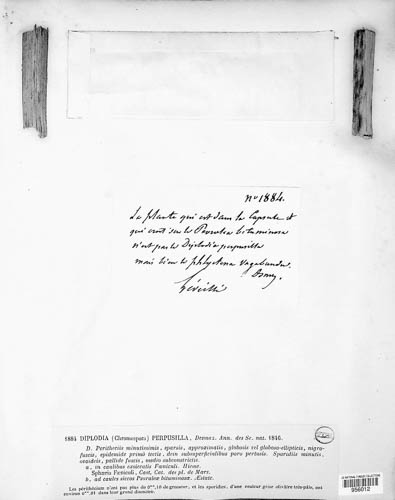 nº 1884.
La plante qui est dans la Capsule et
qui croit sur le Psoralea bituminosa
n'est pas le Diplodia perpusilla
mais bien le phlyctena vagabunda.
Desmz.
Léveillé
1884 DIPLODIA (Chromospora) PERPUSILLA, Desmaz. Ann. des Sc. nat. 1846.
D. Peritheciis minutissimis, sparsis, approximatis, globosis vel globoso-ellipticis, nigro-
fuscis, epidermide primò tectis, dein subsuperficialibus poro pertusis. Sporidiis minutis,
ovoideis, pallide fuscis, medio subconstrictis.
a. in caulibus exsiccatis Fœniculi. Hieme.
Sphæria Fœniculi, Cast. Cat. des pl. de Mars.
b. ad caules siccos Psoraleæ bituminosæ. Æstate.
Les périthéciums n'ont pas plus de 0mm,15 de grosseur, et les sporidies, d'une couleur grise olivâtre très-pâle, ont
environ 0mm,01 dans leur grand diamètre.
956012